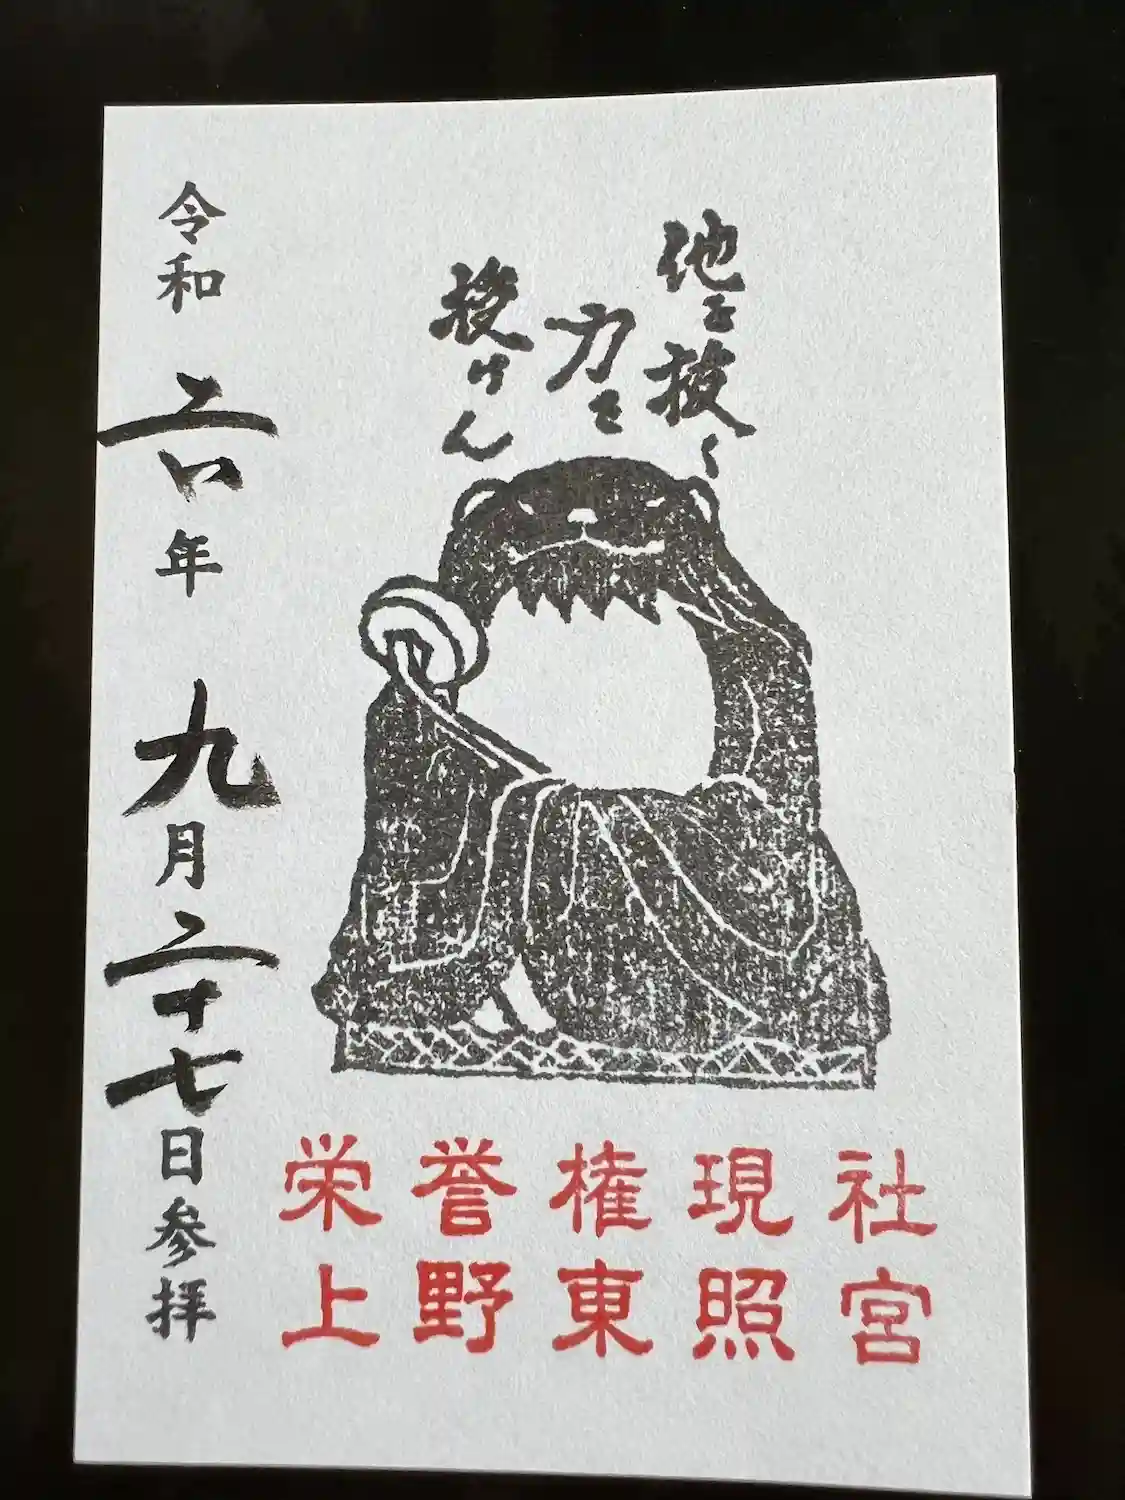 他を抜く
力を
授けん
令和六年九月二十七日参拝
栄誉権現社
上野東照宮